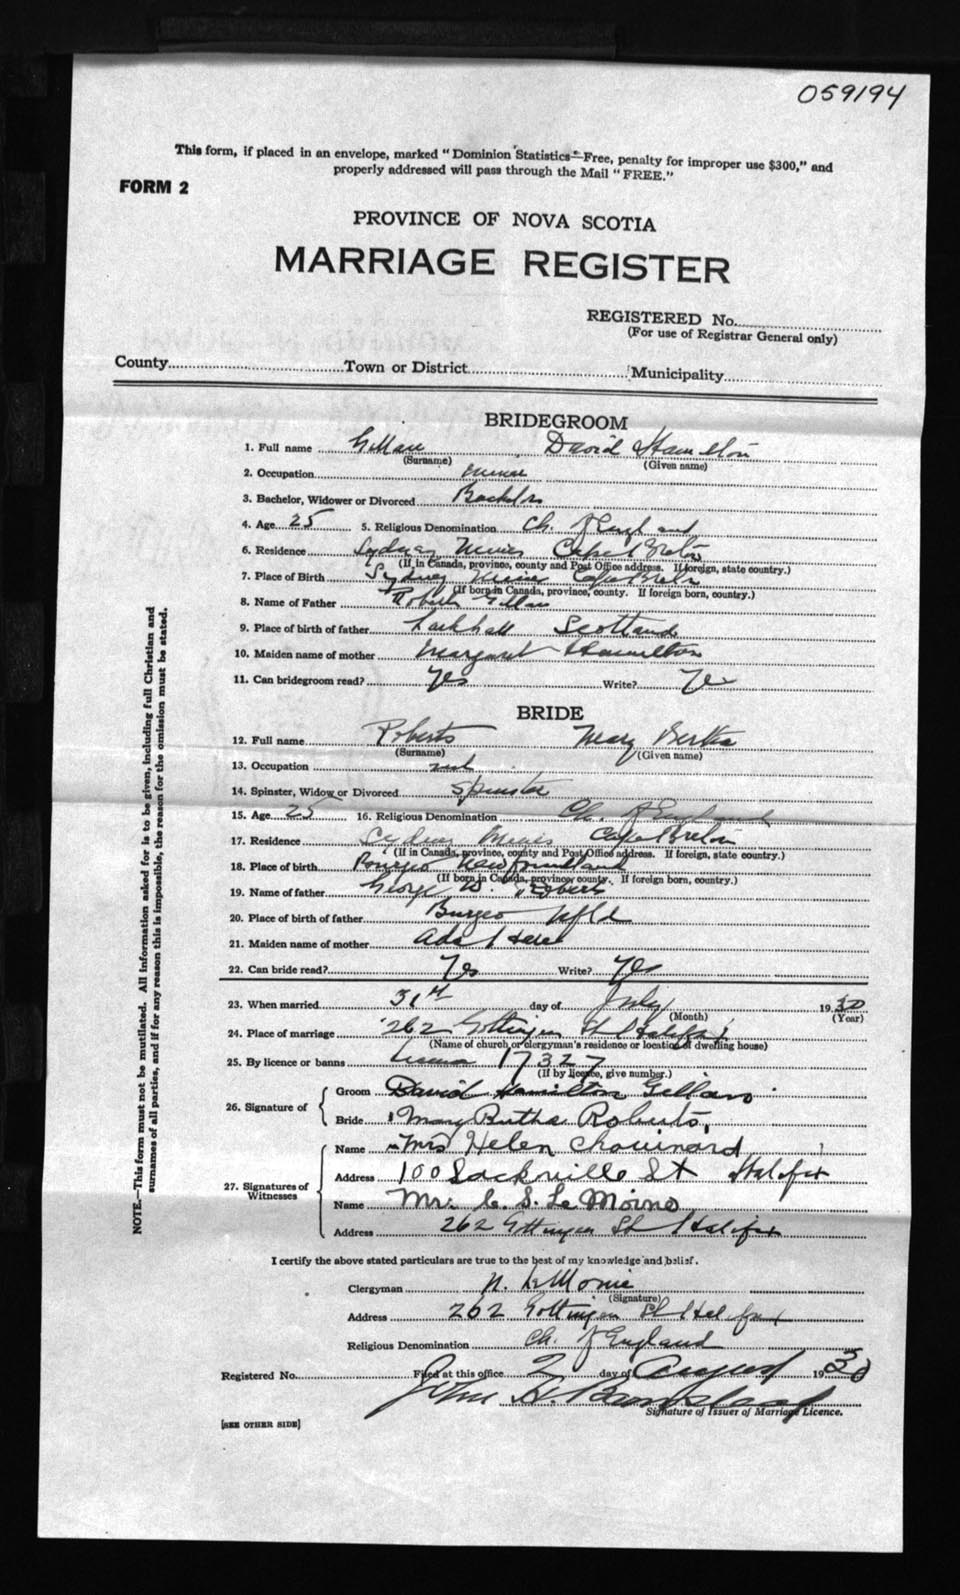 059194
This form, if placed in an envelope, marked "Dominion Statistics—Free, penalty for improper use $300," and
properly addressed will pass through the Mail "FREE."
FORM 2
PROVINCE OF NOVA SCOTIA
MARRIAGE REGISTER
REGISTERED No.
(For use of Registrar General only)
County Town or District Municipality
BRIDEGROOM
1. Full name David Hamilton
(Surname) (Given name)
2. Occupation
3. Bachelor, Widower or Divorced Bachelor
4. Age 25 5. Religious Denomination Ch. of England
6. Residence Sydney Mines Cape Breton
(If in Canada, province, county and Post Office address. If foreign, state country.)
7. Place of Birth Sydney Mines Cape Breton
(If born in Canada, province, county. If foreign born, country.)
8. Name of Father Robert
9. Place of birth of father Larkhall Scotland
10. Maiden name of mother Margaret Hamilton
11. Can bridegroom read? Yes Write? Yes
BRIDE
12. Full name Roberts Mary Bertha
(Surname) (Given name)
13. Occupation
14. Spinster, Widow or Divorced Spinster
15. Age 25 16. Religious Denomination Ch. of England
17. Residence Sydney Mines Cape Breton
(If in Canada, province, county and Post Office address. If foreign, state country.)
18. Place of birth Newfoundland
(If born in Canada, province, county. If foreign born, country.)
19. Name of father George W. Roberts
20. Place of birth of father Burgeo Nfld
21. Maiden name of mother Ada
22. Can bride read? Yes Write? Yes
23. When married 31st day of July 1930
(Month) (Year)
24. Place of marriage 262 Gottingen St Halifax
(Name of church or clergyman's residence or location of dwelling house)
25. By licence or banns 17327
(If by licence, give number.)
26. Signature of
Groom David Hamilton
Bride Mary Bertha Roberts.
27. Signatures of Witnesses
Name Mrs Helen Chouinard
Address 100 Sackville St Halifax
Name Mr. C. S. Le Moine
Address 262 Gottingen St Halifax
I certify the above stated particulars are true to the best of my knowledge and belief.
Clergyman N. LeMoine
(Signature)
Address 262 Gottingen St Halifax
Religious Denomination Ch. of England
Registered No. Filed at this office 2 day of August 1930
John H.
Signature of Issuer of Marriage Licence.
[SEE OTHER SIDE]
NOTE.—This form must not be mutilated. All information asked for is to be given, including full Christian and
surnames of all parties, and if for any reason this is impossible, the reason for the omission must be stated.